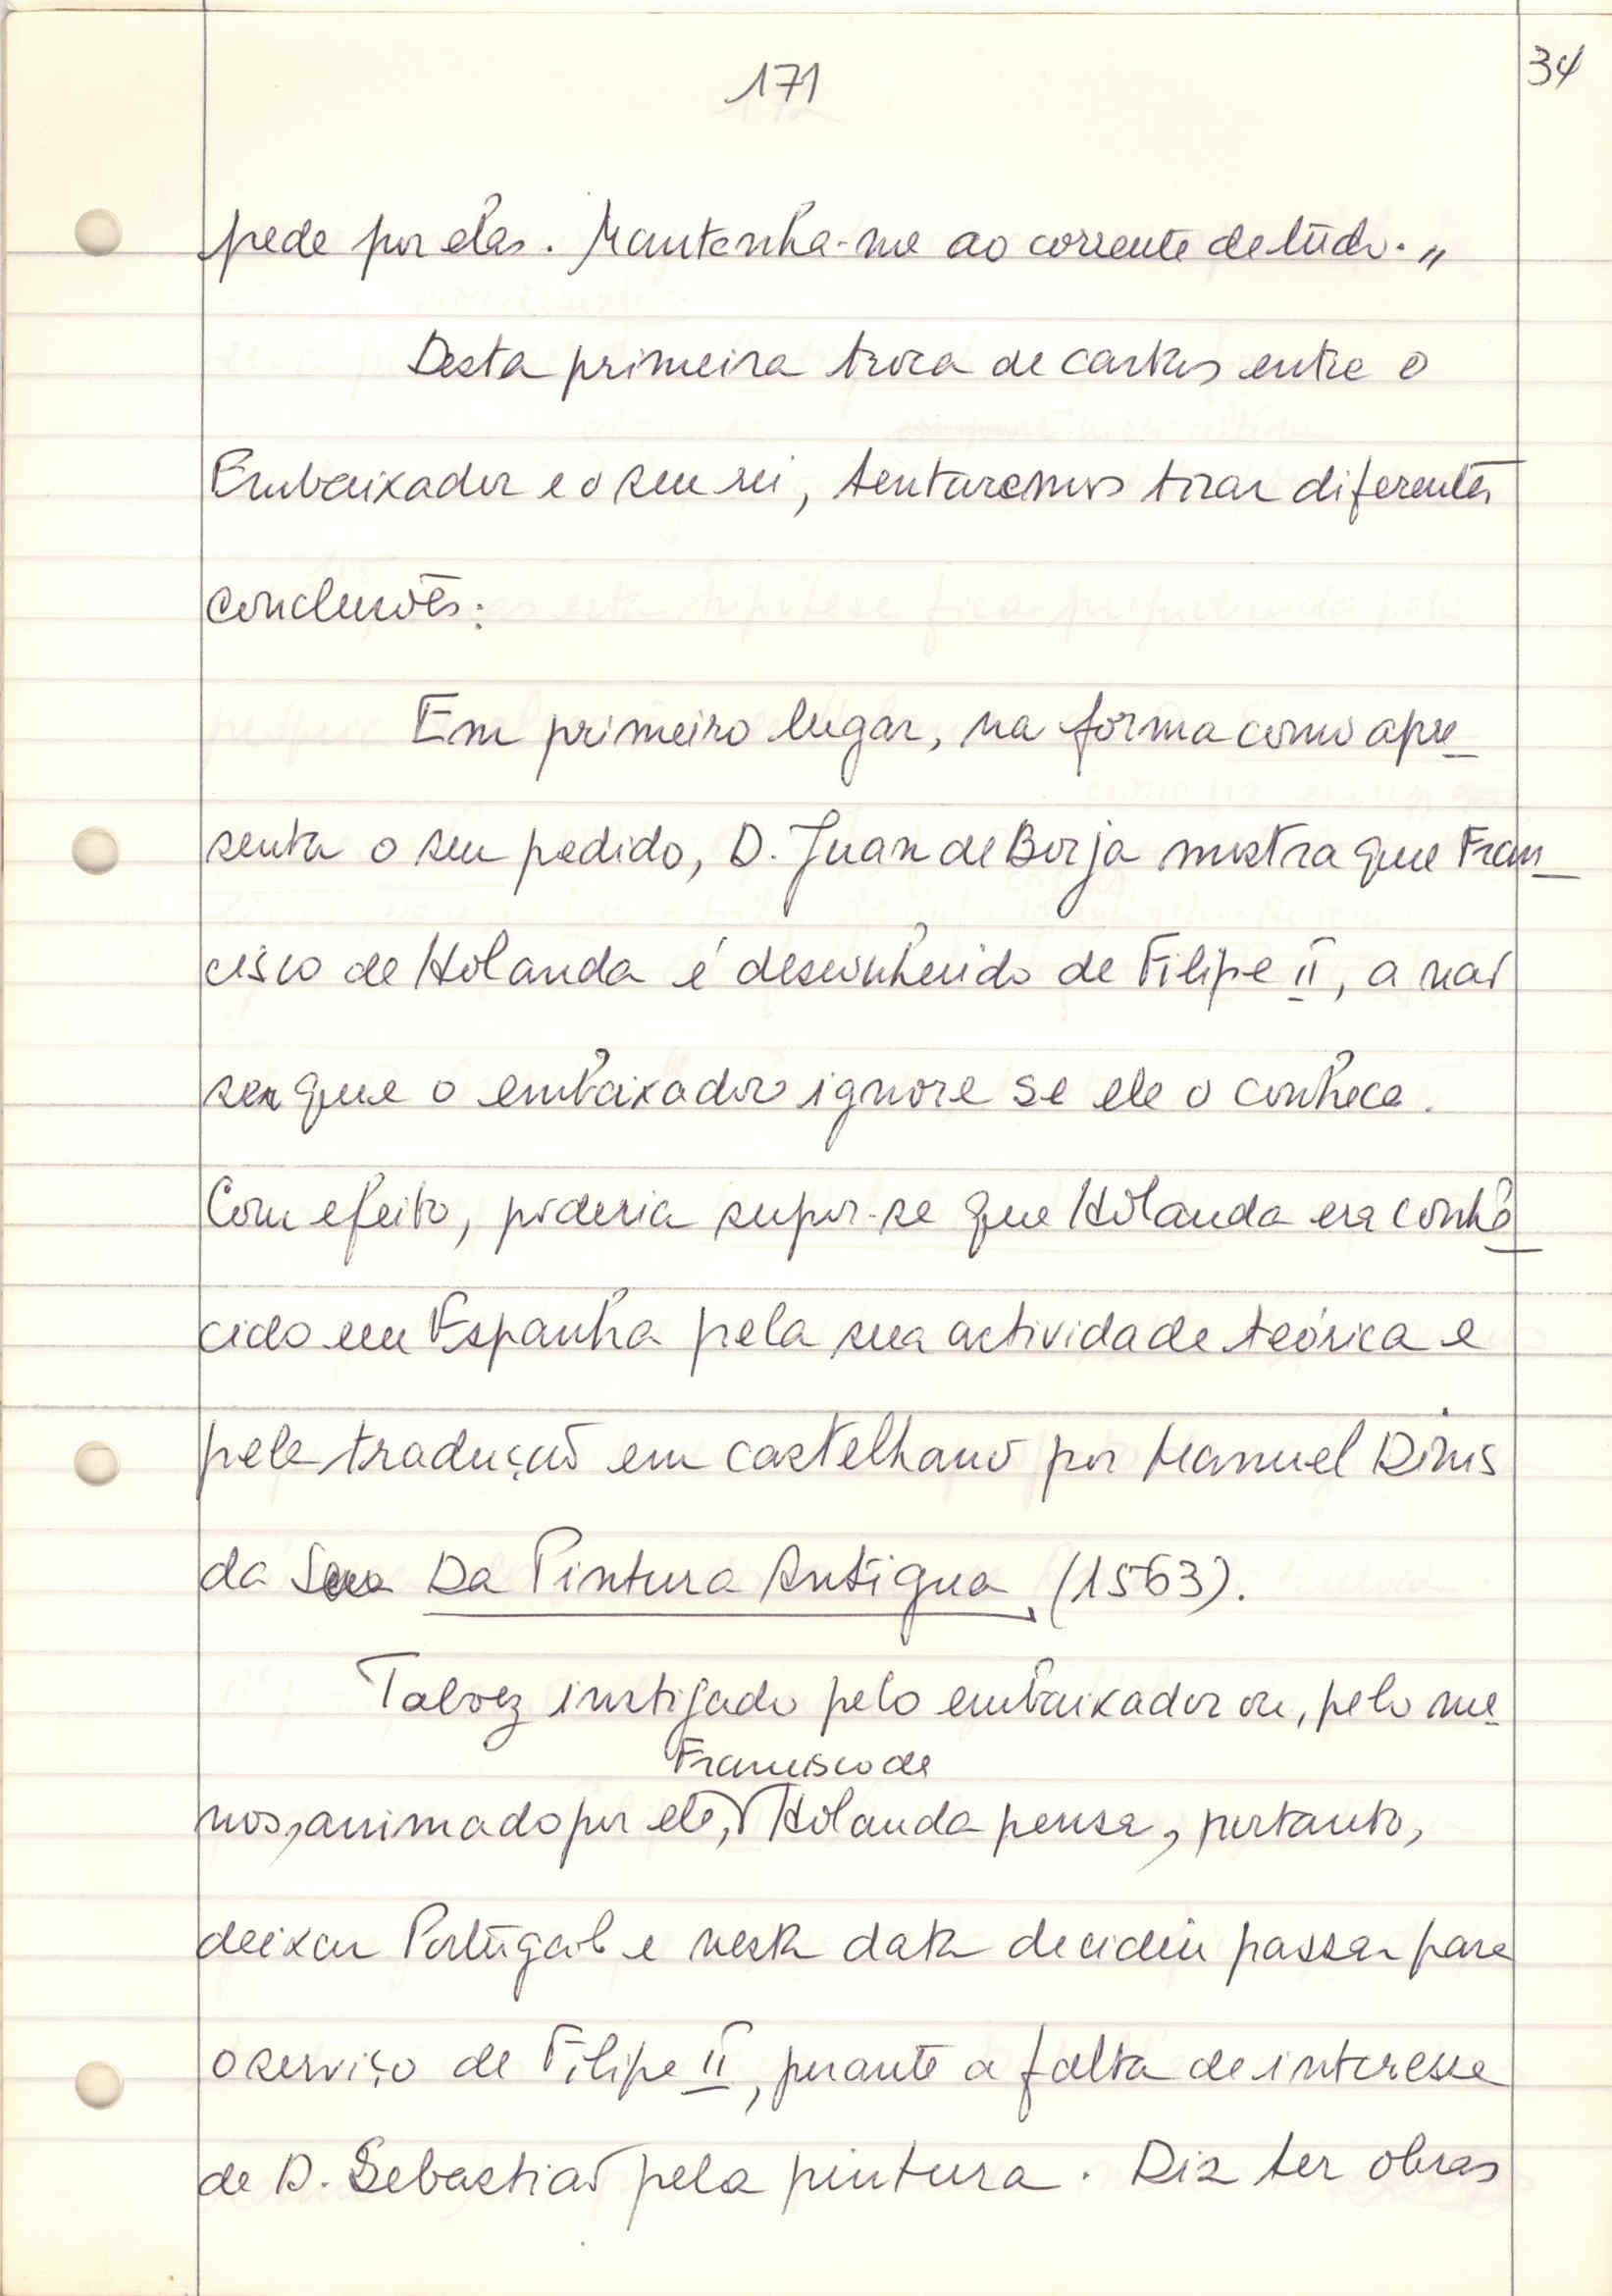 171
34
pede por elas. Mantenha-me ao corrente de tudo."
Desta primeira troca de cartas entre o
Embaixador e o seu rei, tentaremos tirar diferentes
conclusões:
Em primeiro lugar, na forma como apre-
senta o seu pedido, D. Juan de Borja mostra que Fran-
cisco de Holanda é desconhecido de Filipe II, a não
ser que o embaixador ignore se ele o conhece.
Com efeito, poderia supor-se que Holanda era conhe-
cido em Espanha pela sua actividade teórica e
pela tradução em castelhano por Manuel Dinis
da Sua Da Pintura Antigua, (1563).
Talvez instigado pelo embaixador ou, pelo me-
Francisco de
nos, animado por ele, Holanda pensa, portanto,
deixar Portugal e nesta data decidiu passar para
o serviço de Filipe II, perante a falta de interesse
de D. Sebastião pela pintura. Diz ter obras